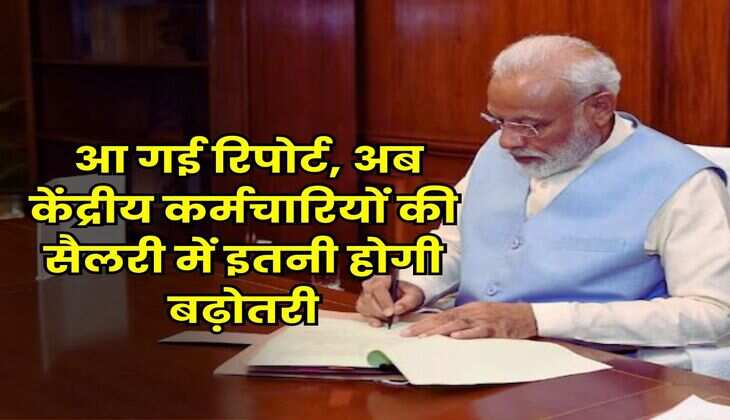 आ गई रिपोर्ट, अब
केंद्रीय कर्मचारियों की
सैलरी में इतनी होगी
बढ़ोतरी